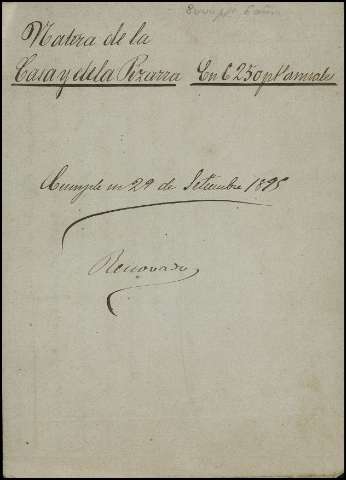 6 años
Matera de la
Casa y de la Pizarra En 6250 pts anuales
Cumple en 29 de Setiembre 1895
Renovado